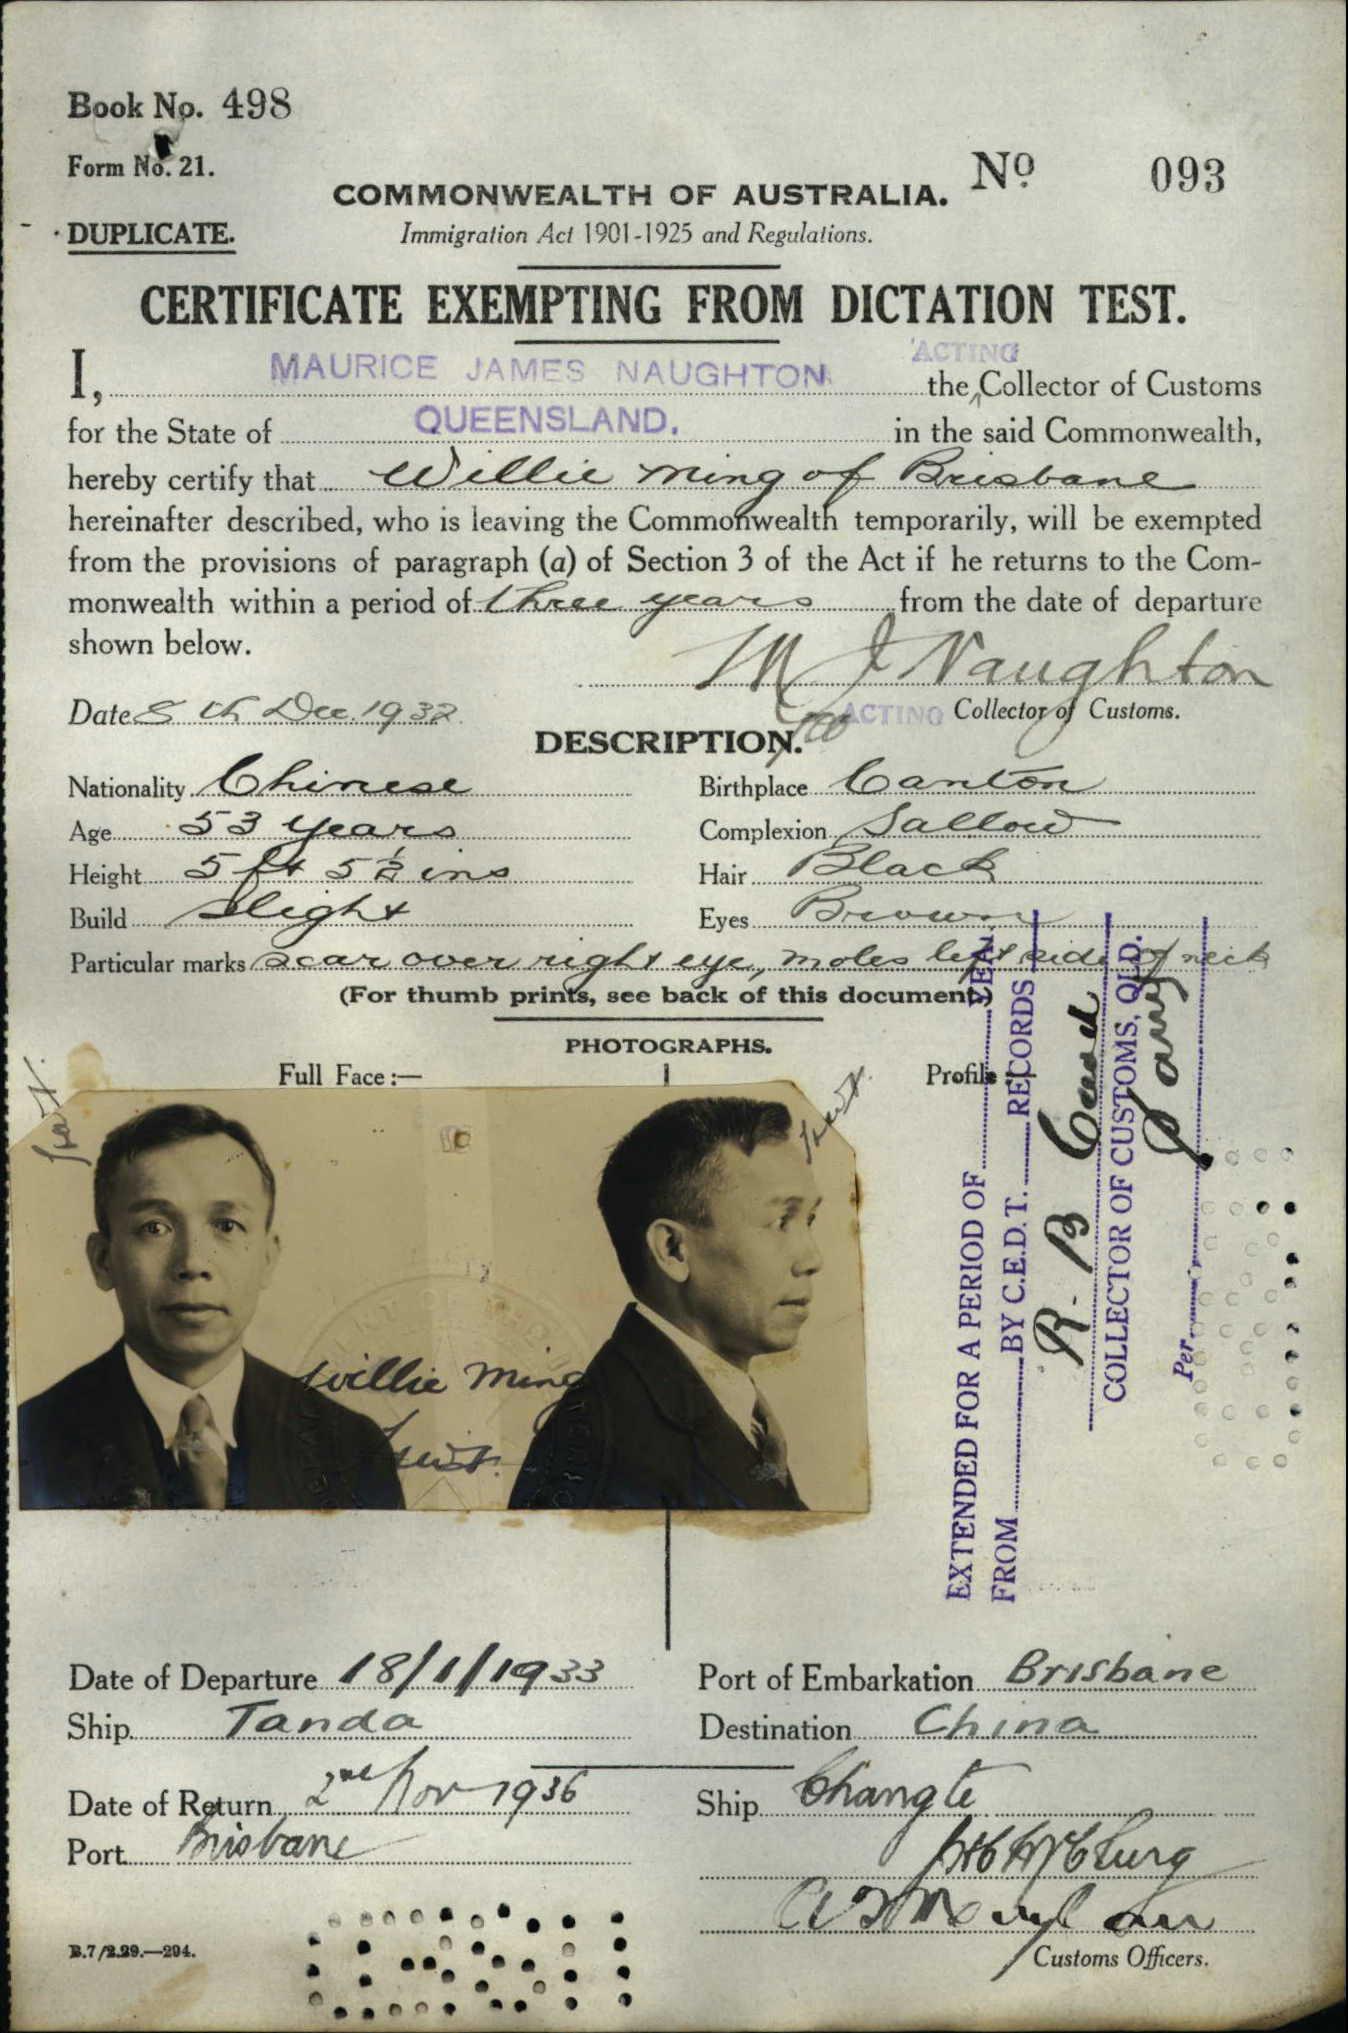 Book No. 498
Form No. 21.
No 093
COMMONWEALTH OF AUSTRALIA.
DUPLICATE.
Immigration Act 1901-1925 and Regulations.
CERTIFICATE EXEMPTING FROM DICTATION TEST.
ACTING
I, MAURICE JAMES NAUGHTON the Collector of Customs
for the State of QUEENSLAND. in the said Commonwealth,
hereby certify that Willie Ming of Brisbane
hereinafter described, who is leaving the Commonwealth temporarily, will be exempted
from the provisions of paragraph (a) of Section 3 of the Act if he returns to the Com-
monwealth within a period of three years from the date of departure
shown below.
M J Naughton
Date 8th Dec. 1932
ACTING Collector of Customs.
DESCRIPTION.
Nationality Chinese
Birthplace Canton
Age 53 years
Complexion Sallow
Height 5 ft 5½ ins
Hair Black
Build Slight
Eyes Brown
Particular marks scar over right eye, moles left side of neck
(For thumb prints, see back of this document.)
PHOTOGRAPHS.
Full Face:—
Profile:—
Willie Ming
EXTENDED FOR A PERIOD OF YEAR
FROM BY C.E.D.T. RECORDS
R. B
COLLECTOR OF CUSTOMS, QLD.
Per
Date of Departure 18/1/1933
Port of Embarkation Brisbane
Ship Tanda
Destination China
Date of Return 2nd Nov 1936
Ship Changte
Port Brisbane
B.7/2.29.—294.
Customs Officers.